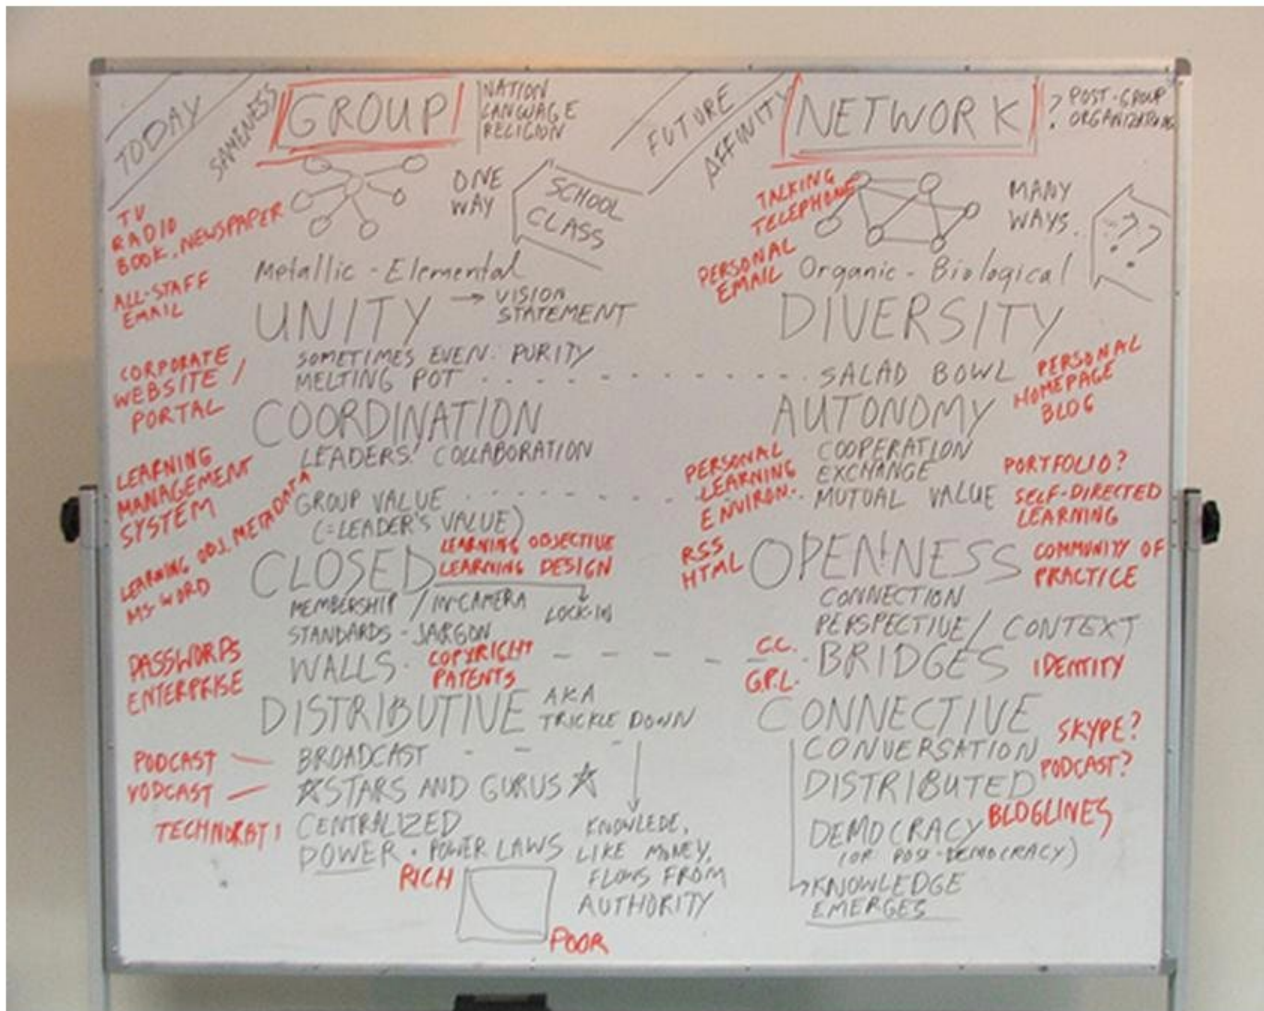 TODAY
SAMENESS
GROUP
NATION
LANGUAGE
RELIGION
ONE
WAY
SCHOOL
CLASS
TV
RADIO
BOOK, NEWSPAPER
ALL-STAFF
EMAIL
Metallic - Elemental
UNITY → VISION
STATEMENT
SOMETIMES EVEN. PURITY
MELTING POT
CORPORATE
WEBSITE /
PORTAL
COORDINATION
LEADERS. COLLABORATION
LEARNING
MANAGEMENT
SYSTEM
GROUP VALUE
(=LEADER'S VALUE)
LEARNING OBJ. METADATA
MS-WORD
CLOSED
LEARNING OBJECTIVE
LEARNING DESIGN
MEMBERSHIP / IN-CAMERA
LOCK-IN
STANDARDS - JARGON
WALLS.
COPYRIGHT
PATENTS
PASSWORDS
ENTERPRISE
DISTRIBUTIVE AKA
TRICKLE DOWN
BROADCAST
PODCAST
VODCAST
☆STARS AND GURUS☆
TECHNORATI
CENTRALIZED
POWER . POWER LAWS
KNOWLEDE,
LIKE MONEY,
FLOWS FROM
AUTHORITY
RICH
POOR
FUTURE
AFFINITY
NETWORK
? POST-GROUP
ORGANIZATIONS
TALKING
TELEPHONE
MANY
WAYS.
??
PERSONAL
EMAIL
Organic - Biological
DIVERSITY
SALAD BOWL
PERSONAL
HOMEPAGE
BLOG
AUTONOMY
COOPERATION
EXCHANGE
MUTUAL VALUE
PERSONAL
LEARNING
ENVIRON..
PORTFOLIO?
SELF-DIRECTED
LEARNING
RSS
HTML
OPENNESS
COMMUNITY OF
PRACTICE
CONNECTION
PERSPECTIVE/CONTEXT
C.C.
G.P.L.
BRIDGES
IDENTITY
CONNECTIVE
CONVERSATION
SKYPE?
DISTRIBUTED
PODCAST?
DEMOCRACY
BLOGLINES
(OR POST-DEMOCRACY)
KNOWLEDGE
EMERGES